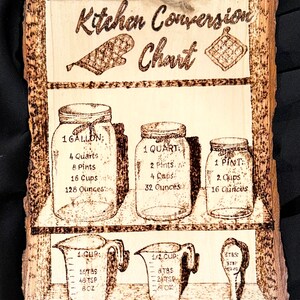 Kitchen Conversion
Chart
1 GALLON:
4 Quarts
8 Pints
16 Cups
128 Ounces
1 QUART:
2 Pints
4 Cups
32 Ounces
1 PINT:
2 Cups
16 Ounces
1 CUP:
16 TBS
48 TSP
8 OZ
1/2 CUP:
8 TBS
24 TSP
4 OZ